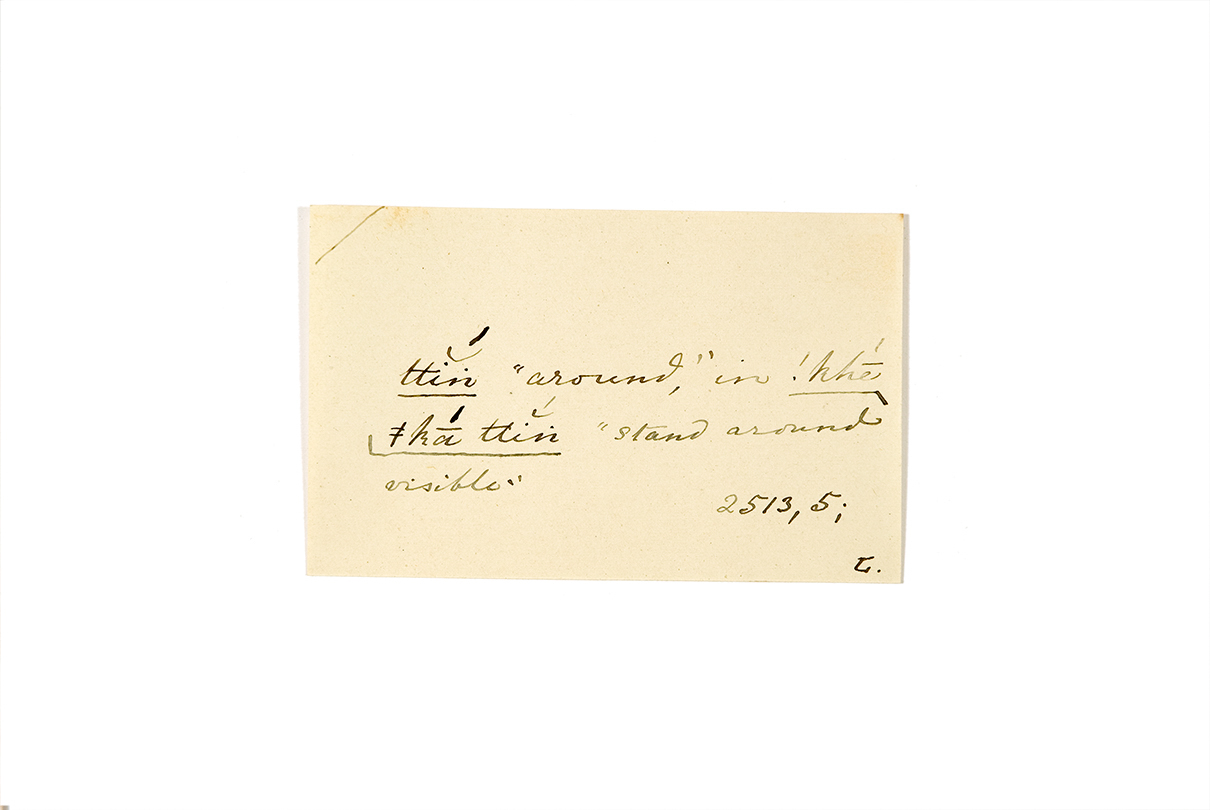 ttĭ́n "around," in !khé̄
ǂká̄ ttĭ́n "stand around
visible"
2513, 5;
L.